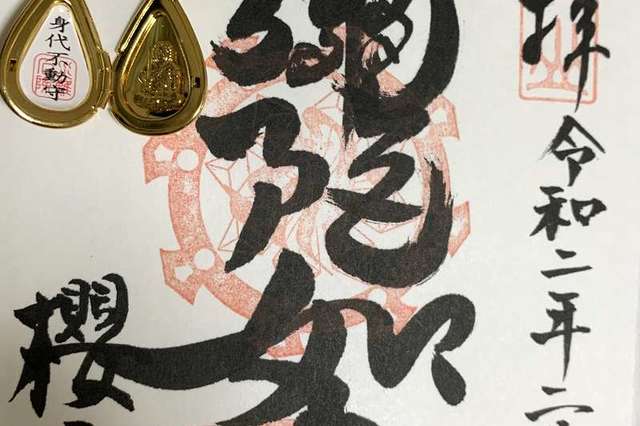 拝令和二年二
彌陀如
櫻
身代不動守